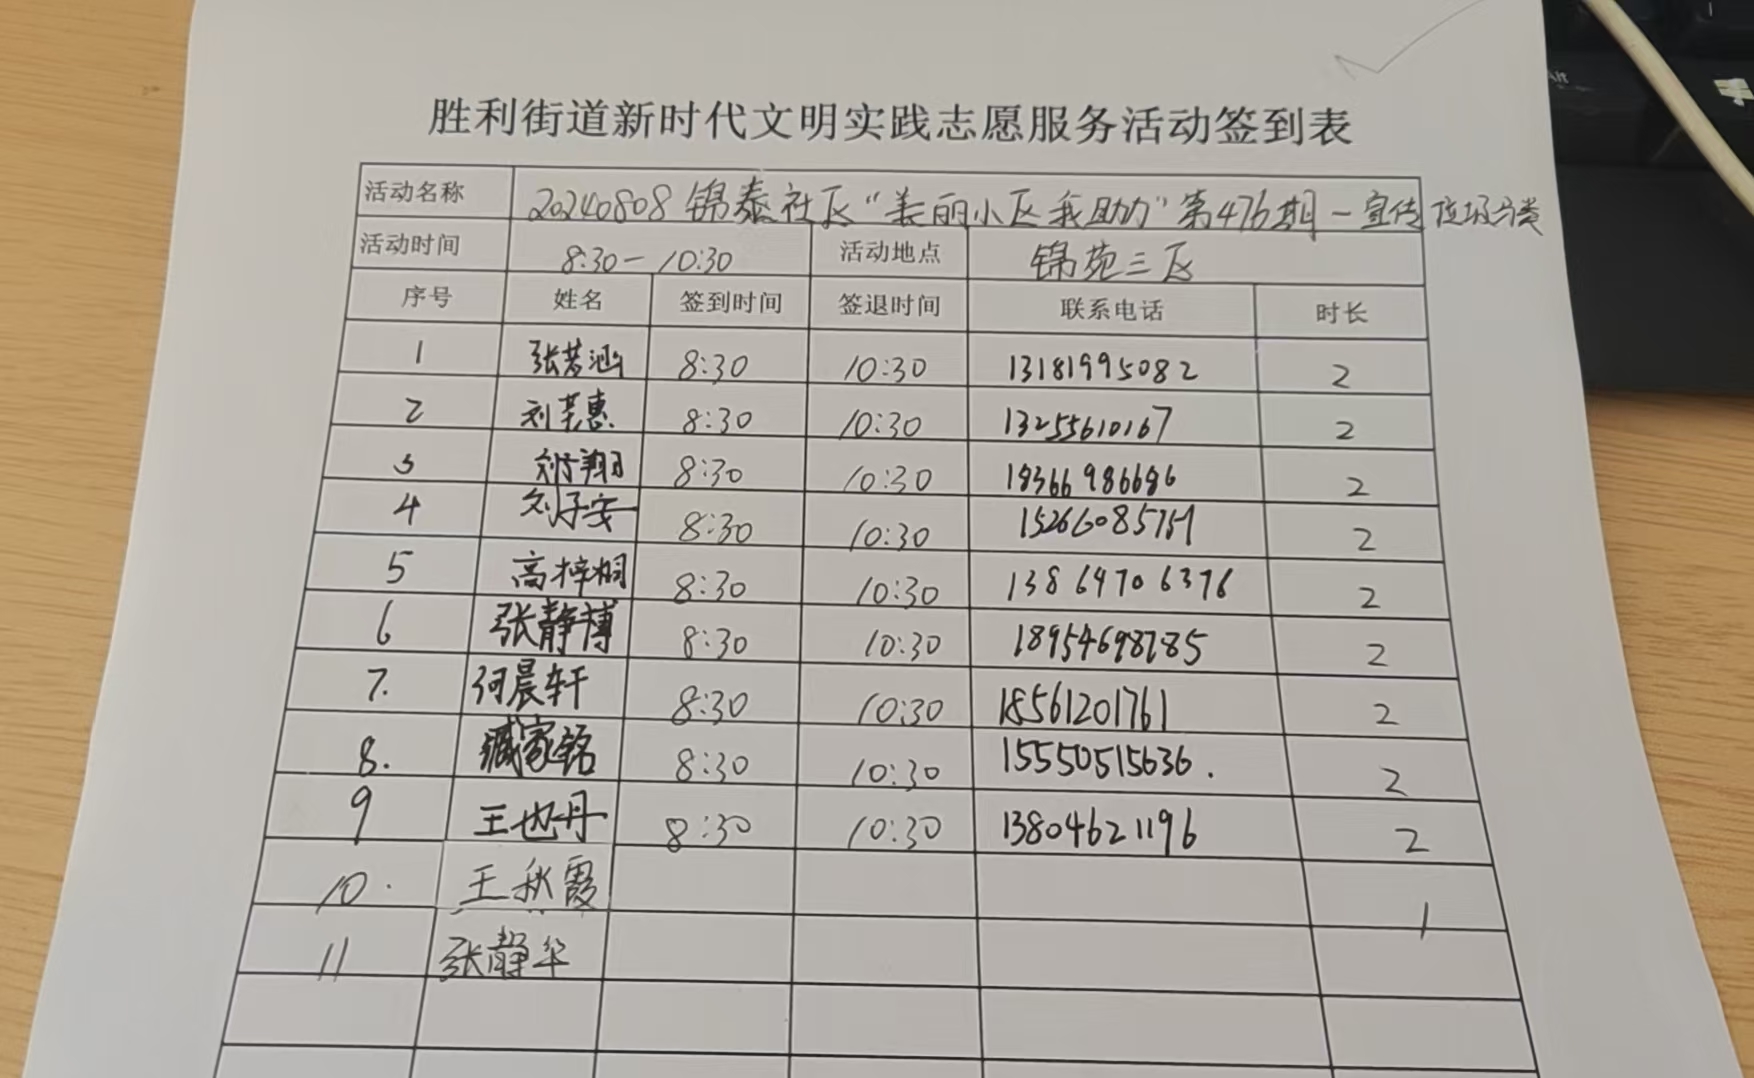 胜利街道新时代文明实践志愿服务活动签到表
活动名称 20240808 锦泰社区“美丽小区我助力”第476期-宣传垃圾分类
活动时间 8:30-10:30 活动地点 锦苑三区
序号 姓名 签到时间 签退时间 联系电话 时长
1 张若涵 8:30 10:30 13181995082 2
2 刘芸惠 8:30 10:30 13255610167 2
3 8:30 10:30 18366986686 2
4 刘子安 8:30 10:30 2
5 高梓桐 8:30 10:30 13864706376 2
6 张静博 8:30 10:30 2
7. 何晨轩 8:30 10:30 18561201761 2
8. 臧家铭 8:30 10:30 15550515636. 2
9 王也丹 8:30 10:30 13804621196 2
10. 王秋霞 1
11 张静华
Alt